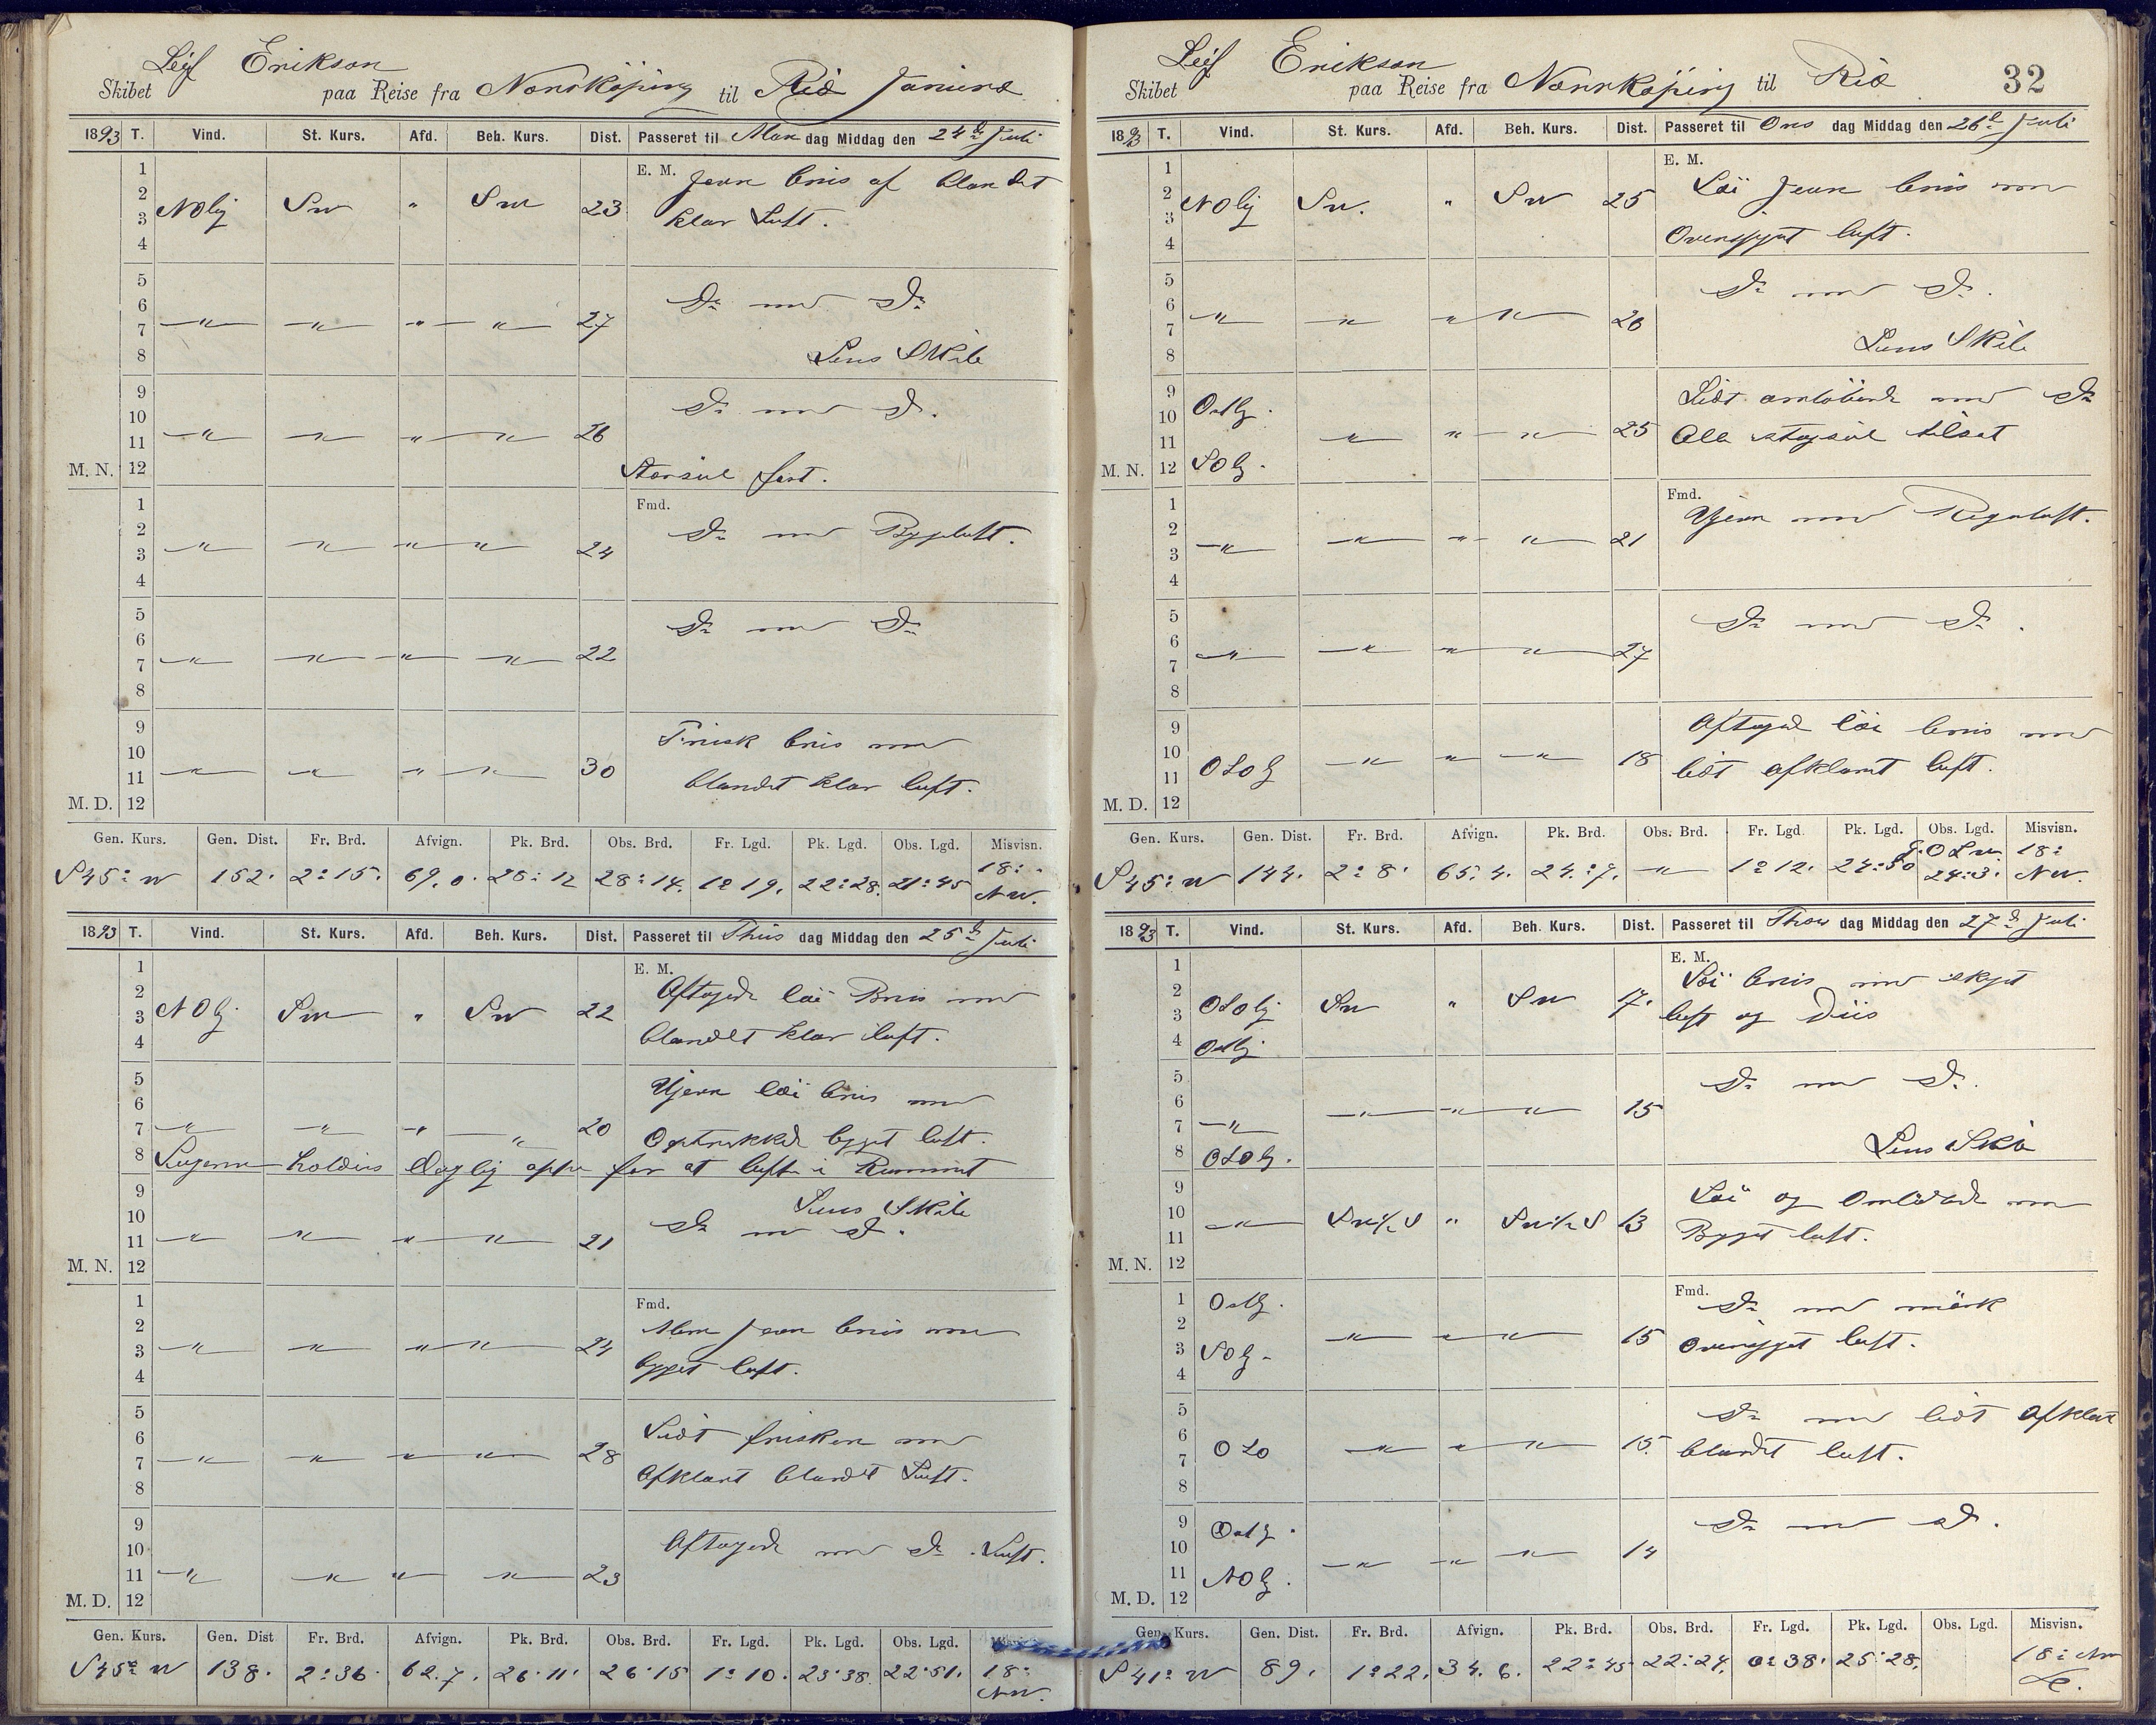 Leif Erikson
Skibet paa Reise fra Norrköping til Rio Janiero
1893 T. Vind. St. Kurs. Afd. Beh. Kurs. Dist. Passeret til Man dag Middag den 24d Juli
1
2
3
4
E. M. Jevn bris af blandet
NOlig SW " SW 23 klar Luft.
5
6
7
8
Do med Do
" " " " 27
Lens Skib
9
10
11
M. N. 12
Do med Do.
" " " " 26
Storseil fast.
1
2
3
4
Fmd.
Do med Bygeluft.
" " " " 24
5
6
7
8
Do med Do
" " " " 22
9
10
11
M. D. 12
Frisk bris med
" " " " 30
blandet klar luft.
Gen. Kurs. Gen. Dist. Fr. Brd. Afvign. Pk. Brd. Obs. Brd. Fr. Lgd. Pk. Lgd. Obs. Lgd. Misvisn.
S45° W 152. 2° 15. 69.0. 28° 12 28° 14. 1° 19. 22° 28. 21° 45 18° NW.
1893 T. Vind. St. Kurs. Afd. Beh. Kurs. Dist. Passeret til Thirs dag Middag den 25d Juli
1
2
3
4
E. M.
Aftagede löi Bris med
NOlg. SW " SW 22
blandet klar luft.
5
6
7
8
Ujevn löi bris med
" " " " 20 Optrukket bygget luft.
Lugerne holdes daglig oppe for at lufte i Rummet
9
10
11
M. N. 12
Lens Skib
Do med Do.
" " " " 21
1
2
3
4
Fmd.
Mere jevn bris med
" " " " 24
bygget luft.
5
6
7
8
Lidt friskere med
" " " " 28
Afklart blandet Luft.
9
10
11
M. D. 12
Aftagede med Do Luft.
" " " " 23
Gen. Kurs. Gen. Dist Fr. Brd. Afvign. Pk. Brd. Obs. Brd. Fr. Lgd. Pk. Lgd. Obs. Lgd.
S45° W 138. 2° 36. 62.7. 26° 11. 26° 15 1° 10. 23° 38. 22° 51. 18° NW.
Leif Erikson
Skibet paa Reise fra Norrköping til Rio 32
1893 T. Vind. St. Kurs. Afd. Beh. Kurs. Dist. Passeret til Ons dag Middag den 26d Juli
1
2
3
4
E. M.
Löi jevn bris med
NOlig SW. " SW 25
Overskyet luft.
5
6
7
8
Do med Do.
" " " " 26
Lens Skib
9
10
11
M. N. 12
Ostlg.
Lidt omlöbende med Do
" " " 25 Alle stagseil tilsat
SOlg.
1
2
3
4
Fmd.
Ujevn med Regnluft.
" " " " 21
5
6
7
8
Do med Do.
" " " " 27
9
10
11
M. D. 12
Aftagede löi bris med
OSOlg " " " 18 lidt afklaret luft.
Gen. Kurs. Gen. Dist. Fr. Brd. Afvign. Pk. Brd. Obs. Brd. Fr. Lgd. Pk. Lgd. Obs. Lgd. Misvisn.
S45° W 144. 2° 8. 65.4. 24° 7. " 1° 12. 24° 50 24° 3. 18° NW.
1893 T. Vind. St. Kurs. Afd. Beh. Kurs. Dist. Passeret til Thors dag Middag den 27d Juli
1
2
3
4
E. M.
Löi bris med skyet
OSOlig SW " SW 17. luft og Diis
Ostlig
5
6
7
8
Do med Do.
" " " " 15
OSOlg. Lens Skib
9
10
11
M. N. 12
Löi og Omlöbende med
" SW½S " SW½S 13 Bygget luft.
1
2
3
4
Ostlg.
Fmd.
Do med mörk
" " " 15 overskyet luft.
SOlg.
5
6
7
8
Do med lidt Afklart
OSO " " " 15. blandet luft.
9
10
11
M. D. 12
Ostlg.
Do med Do.
" " " 14
NOlg.
Gen. Kurs. Gen. Dist. Fr. Brd. Afvign. Pk. Brd. Obs. Brd. Fr. Lgd. Pk. Lgd. Obs. Lgd. Misvisn.
S41° W 89. 1° 22. 34.6. 22° 45 22° 24. 0° 38. 25° 28. 18° NW